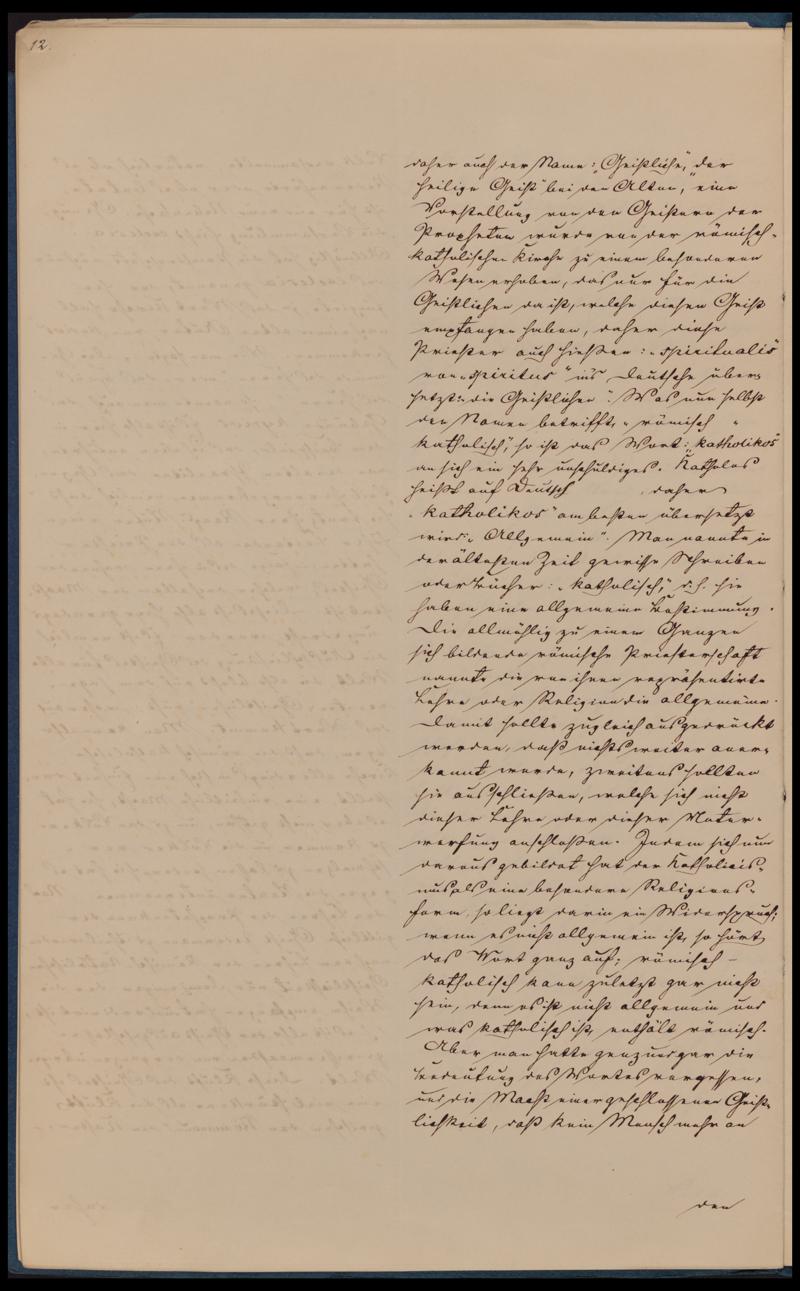 12.
daher auch der Name: „Geistliche“, der
heilige Geist“ bei den Alten, eine
Vorstellung von den Geistern der
Propheten wurde von der römisch-
katholischen Kirche zu einem besonderen
Wesen erhoben, das nur für die
Geistlichen da ist, welche diesen Geist
empfangen haben, daher diese
Priester auch hießen: „spiritualis“
von „spiritus“ ins Deutsche über-
setzt: die Geistlichen“. Was nun selbst
den Namen betrifft, „römisch
katholisch“, so ist das Wort: „katholikos“
an sich ein sehr unschuldiges. Katholos
heißt auf Deutsch , daher
„katholikos“ am besten übersetzt
wird: „Allgemein“. Man nannte in
der ältesten Zeit gewisse Schreiben
oder Bücher: „katholisch“, d.h. sie
haben eine allgemeine Bestimmung.
Die allmählig zu einem Ganzen
sich bildende römische Priesterschaft
nannte die von ihnen repräsentirte
Lehre oder Religion die allgemeine.
Damit sollte zugleich ausgedrückt
werden, daß nichts weiter aner-
kannt werde, zweitens sollten
sie ausschließen, welche sich nicht
dieser Lehre oder dieser Unter-
werfung anschloßen. Indem sich nun
daraus gebildet hat der Katholicis-
mus als eine besondere Religions-
form, so liegt darin ein Widerspruch;
wenn es nicht allgemein ist, so hört
das Wort ganz auf; römisch-
katholisch kann zuletzt gar nicht
sein, denn es ist nicht allgemein und
was katholisch ist, enthält römisch.
Aber man hatte ganz und gar die
Bedeutung des Wortes vergessen,
und die Macht einer geschlossenen Geist-
lichkeit, daß kein Mensch mehr an
den